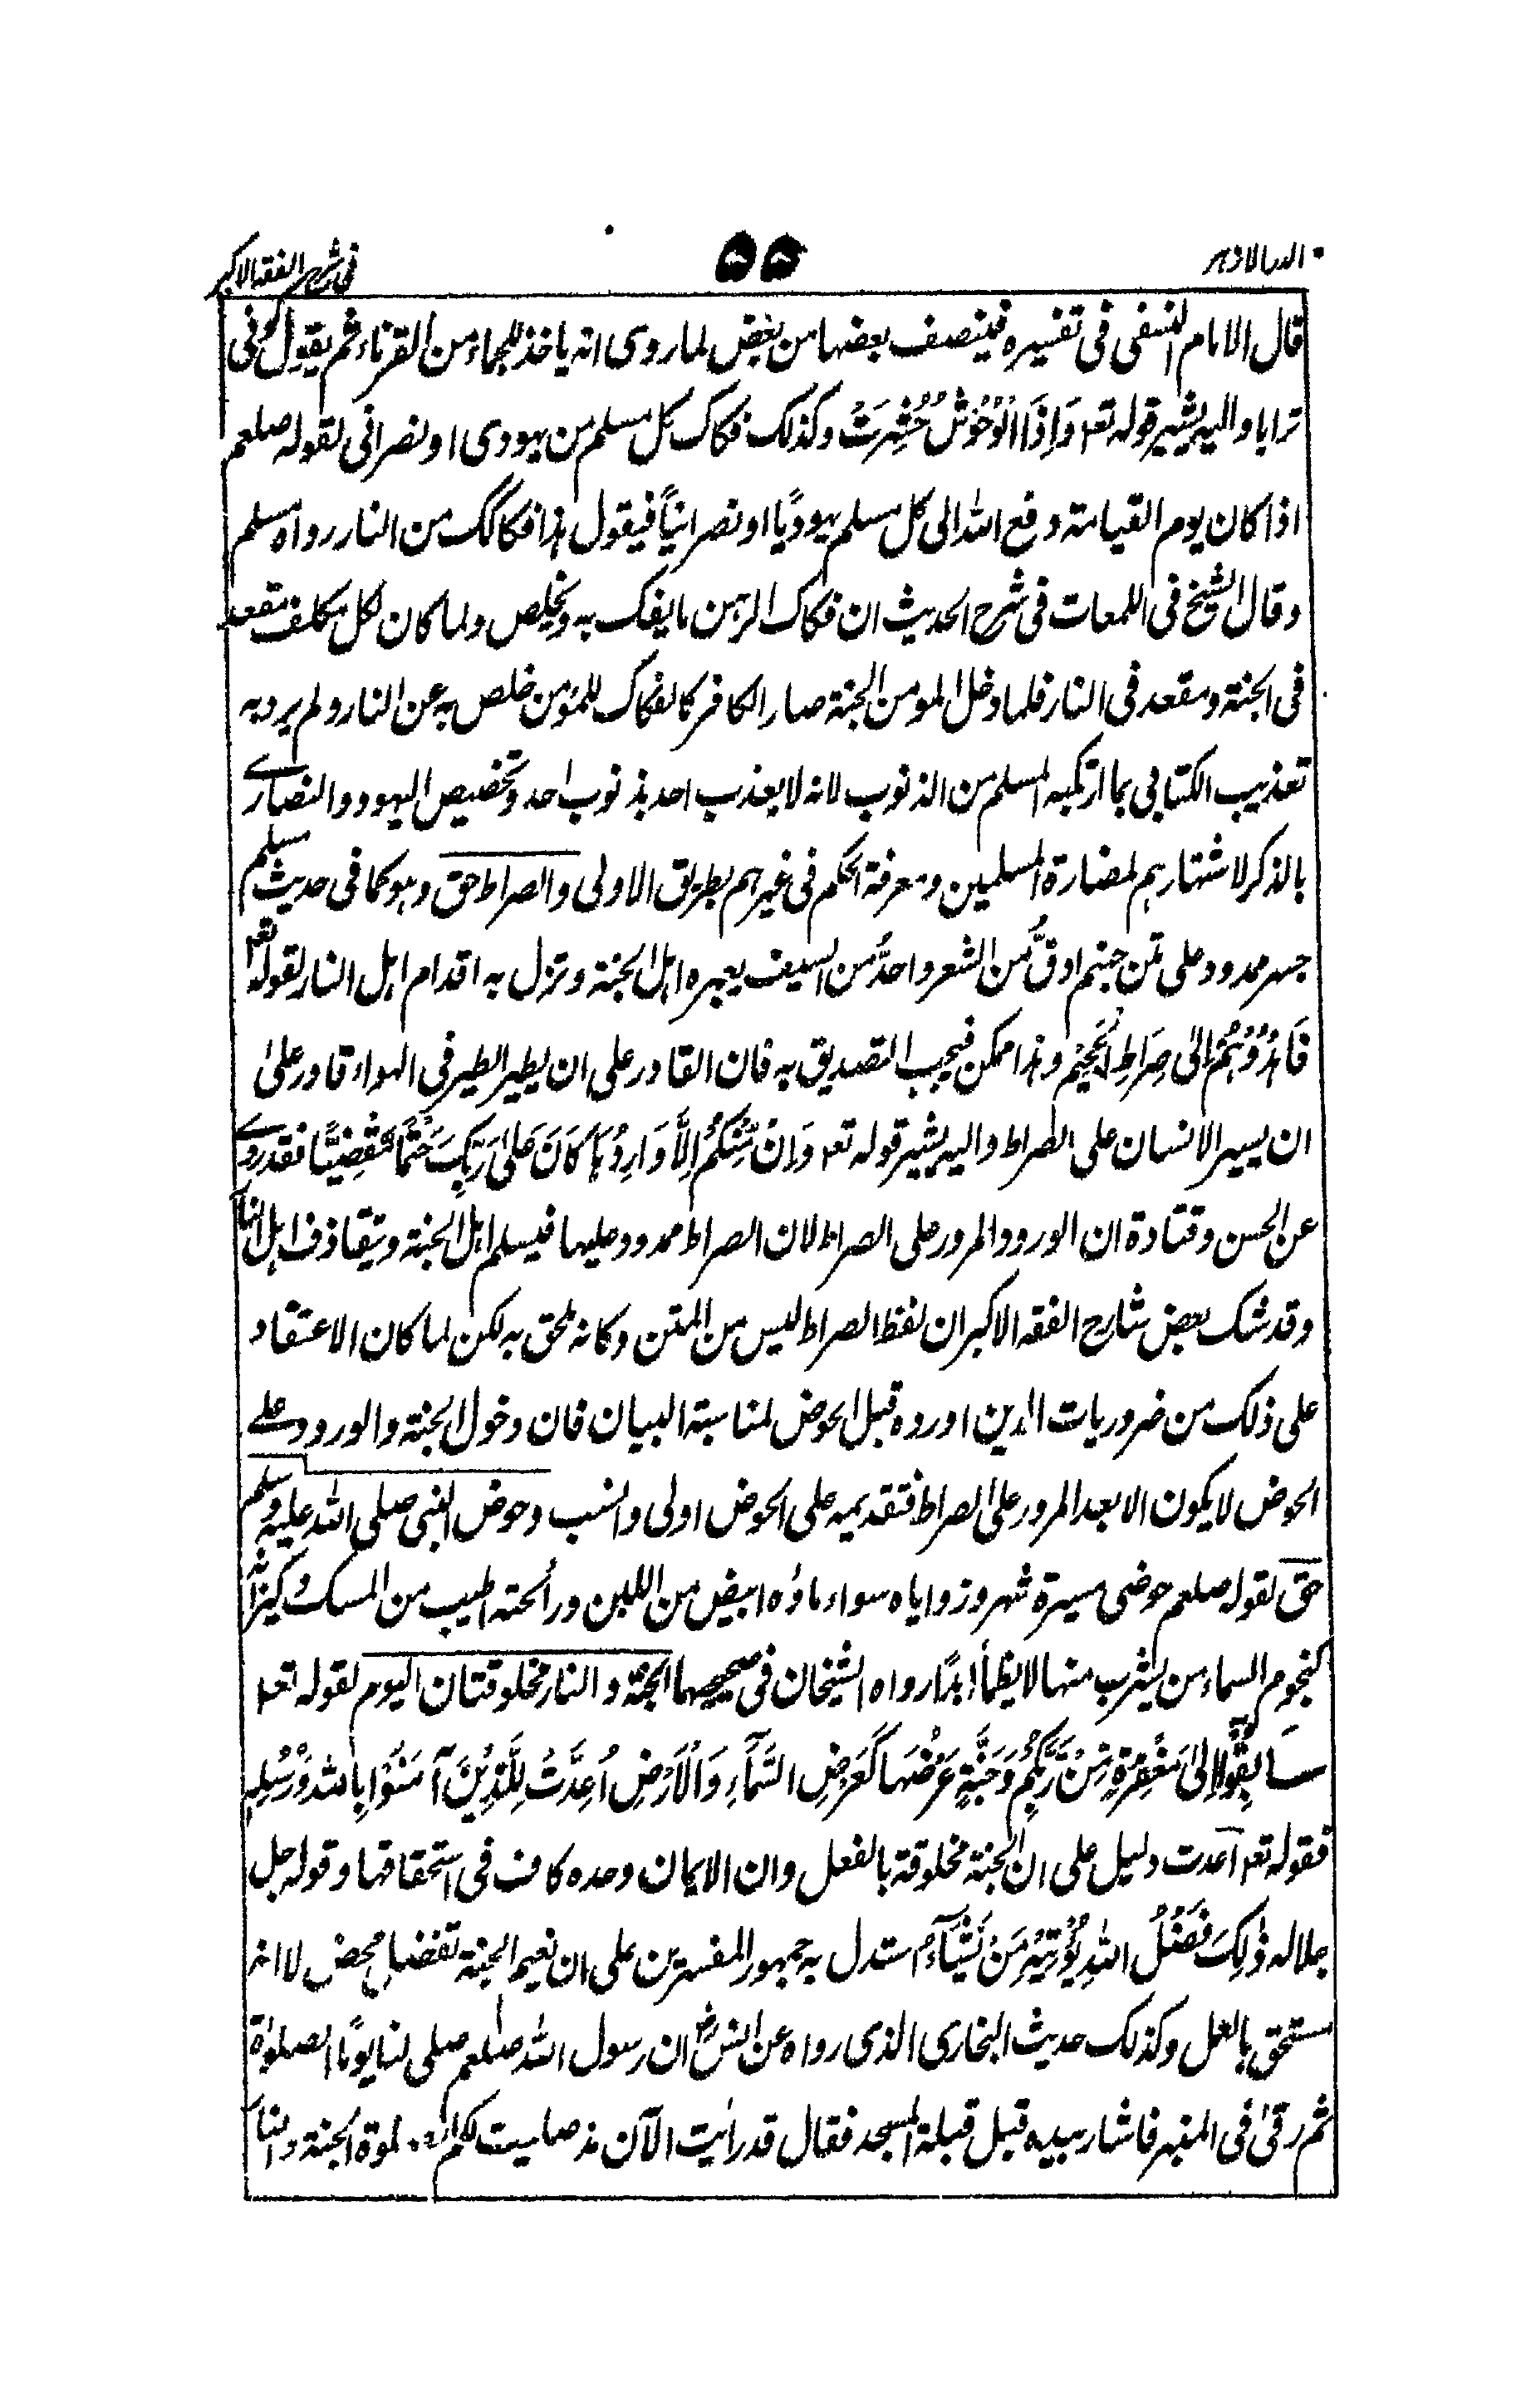 الدر الازهر ۵۵ فی شرح الفقه الاکبر
قال الامام النسفی فی تفسیره فینصف بعضها من بعض لما روی انه یاخذ للجماء من القرناء ثم یقول کونی
ترابا والیه یشیر قوله تع وَاِذَا الْوُحُوْشُ حُشِرَتْ وکذلک فکاک کل مسلم من یهودی او نصرانی لقوله صلعم
اذا کان یوم القیامة دفع الله الی کل مسلم یهودیًا او نصرانیًا فیقول هذا فکاکک من النار رواه مسلم
وقال الشیخ فی اللمعات فی شرح الحدیث ان فکاک الرهن ما یفک به ویخلص ولما کان لکل مکلف مقعد
فی الجنة ومقعد فی النار فلما دخل المومن الجنة صار الکافر کالفکاک للمؤمن خلص به عن النار ولم یرد به
تعذیب الکتابی بما ارتکبه المسلم من الذنوب لانه لا یعذب احد بذنوب احد وتخصیص الیهود والنصارے
بالذکر لاشتهارهم لمضارة المسلمین ومعرفة الحکم فی غیرهم بطریق الاولی والصراط حق وهو کما فی حدیث مسلم
جسر ممدود علی متن جهنم ادقُّ من الشعر واحدُّ من السیف یعبره اهل الجنة وتزل به اقدام اهل النار لقوله تع
فَاهْدُوْهُمْ اِلٰی صِرَاطِ الْجَحِیْمِ وهذا ممکن فیجب التصدیق به فان القادر علی ان یطیر الطیر فی الهواء قادر علیٰ
ان یسیر الانسان علی الصراط والیه یشیر قوله تع وَاِنْ مِّنْکُمْ اِلَّا وَارِدُهَا کَانَ عَلیٰ رَبِّکَ حَتْمًا مَّقْضِیًّا فقد روے
عن الحسن وقتادة ان الورود المرور علی الصراط لان الصراط ممدود علیها فیسلم اهل الجنة ویتقاذف اهل النار
وقد شک بعض شارح الفقه الاکبر ان لفظ الصراط لیس من المتن وکانه ملحق به لکن لما کان الاعتقاد
علی ذلک من ضروریات الدین اورده قبل الحوض لمناسبة البیان فان دخول الجنة والورود علے
الحوض لا یکون الا بعد المرور علی الصراط فتقدیمه علی الحوض اولی وانسب وحوض النبی صلی الله علیه وسلم
حق لقوله صلعم حوضی مسیرة شهر وزوایاه سواء ماؤه ابیض من اللبن ورائحته اطیب من المسک وکیزانه
کنجوم السماء من یشرب منها لا یظمأ ابدًا رواه الشیخان فی صحیحهما الجنة والنار مخلوقتان الیوم لقوله تع
سَابِقُوْا اِلیٰ مَغْفِرَةٍ مِّنْ رَّبِّکُمْ وَجَنَّةٍ عَرْضُهَا کَعَرْضِ السَّمَآءِ وَالْاَرْضِ اُعِدَّتْ لِلَّذِیْنَ آمَنُوْا بِاللهِ وَرُسُلِهٖ
فقوله تع اعدت دلیل علی ان الجنة مخلوقة بالفعل وان الایمان وحده کاف فی استحقاقها وقوله جل
جلاله ذٰلِکَ فَضْلُ اللهِ یُؤْتِیْهِ مَنْ یَّشَآءُ استدل به جمهور المفسرین علی ان نعیم الجنة تفضل محض لا انه
مستحق بالعمل وکذلک حدیث البخاری الذی رواه عن انسؓ ان رسول الله صلعم صلی لنا یومًا الصلوٰة
ثم رقیٰ فی المنبر فاشار بیده قبل قبلة المسجد فقال قد رأیت الآن مذ صلیت لکم الجنة والنار